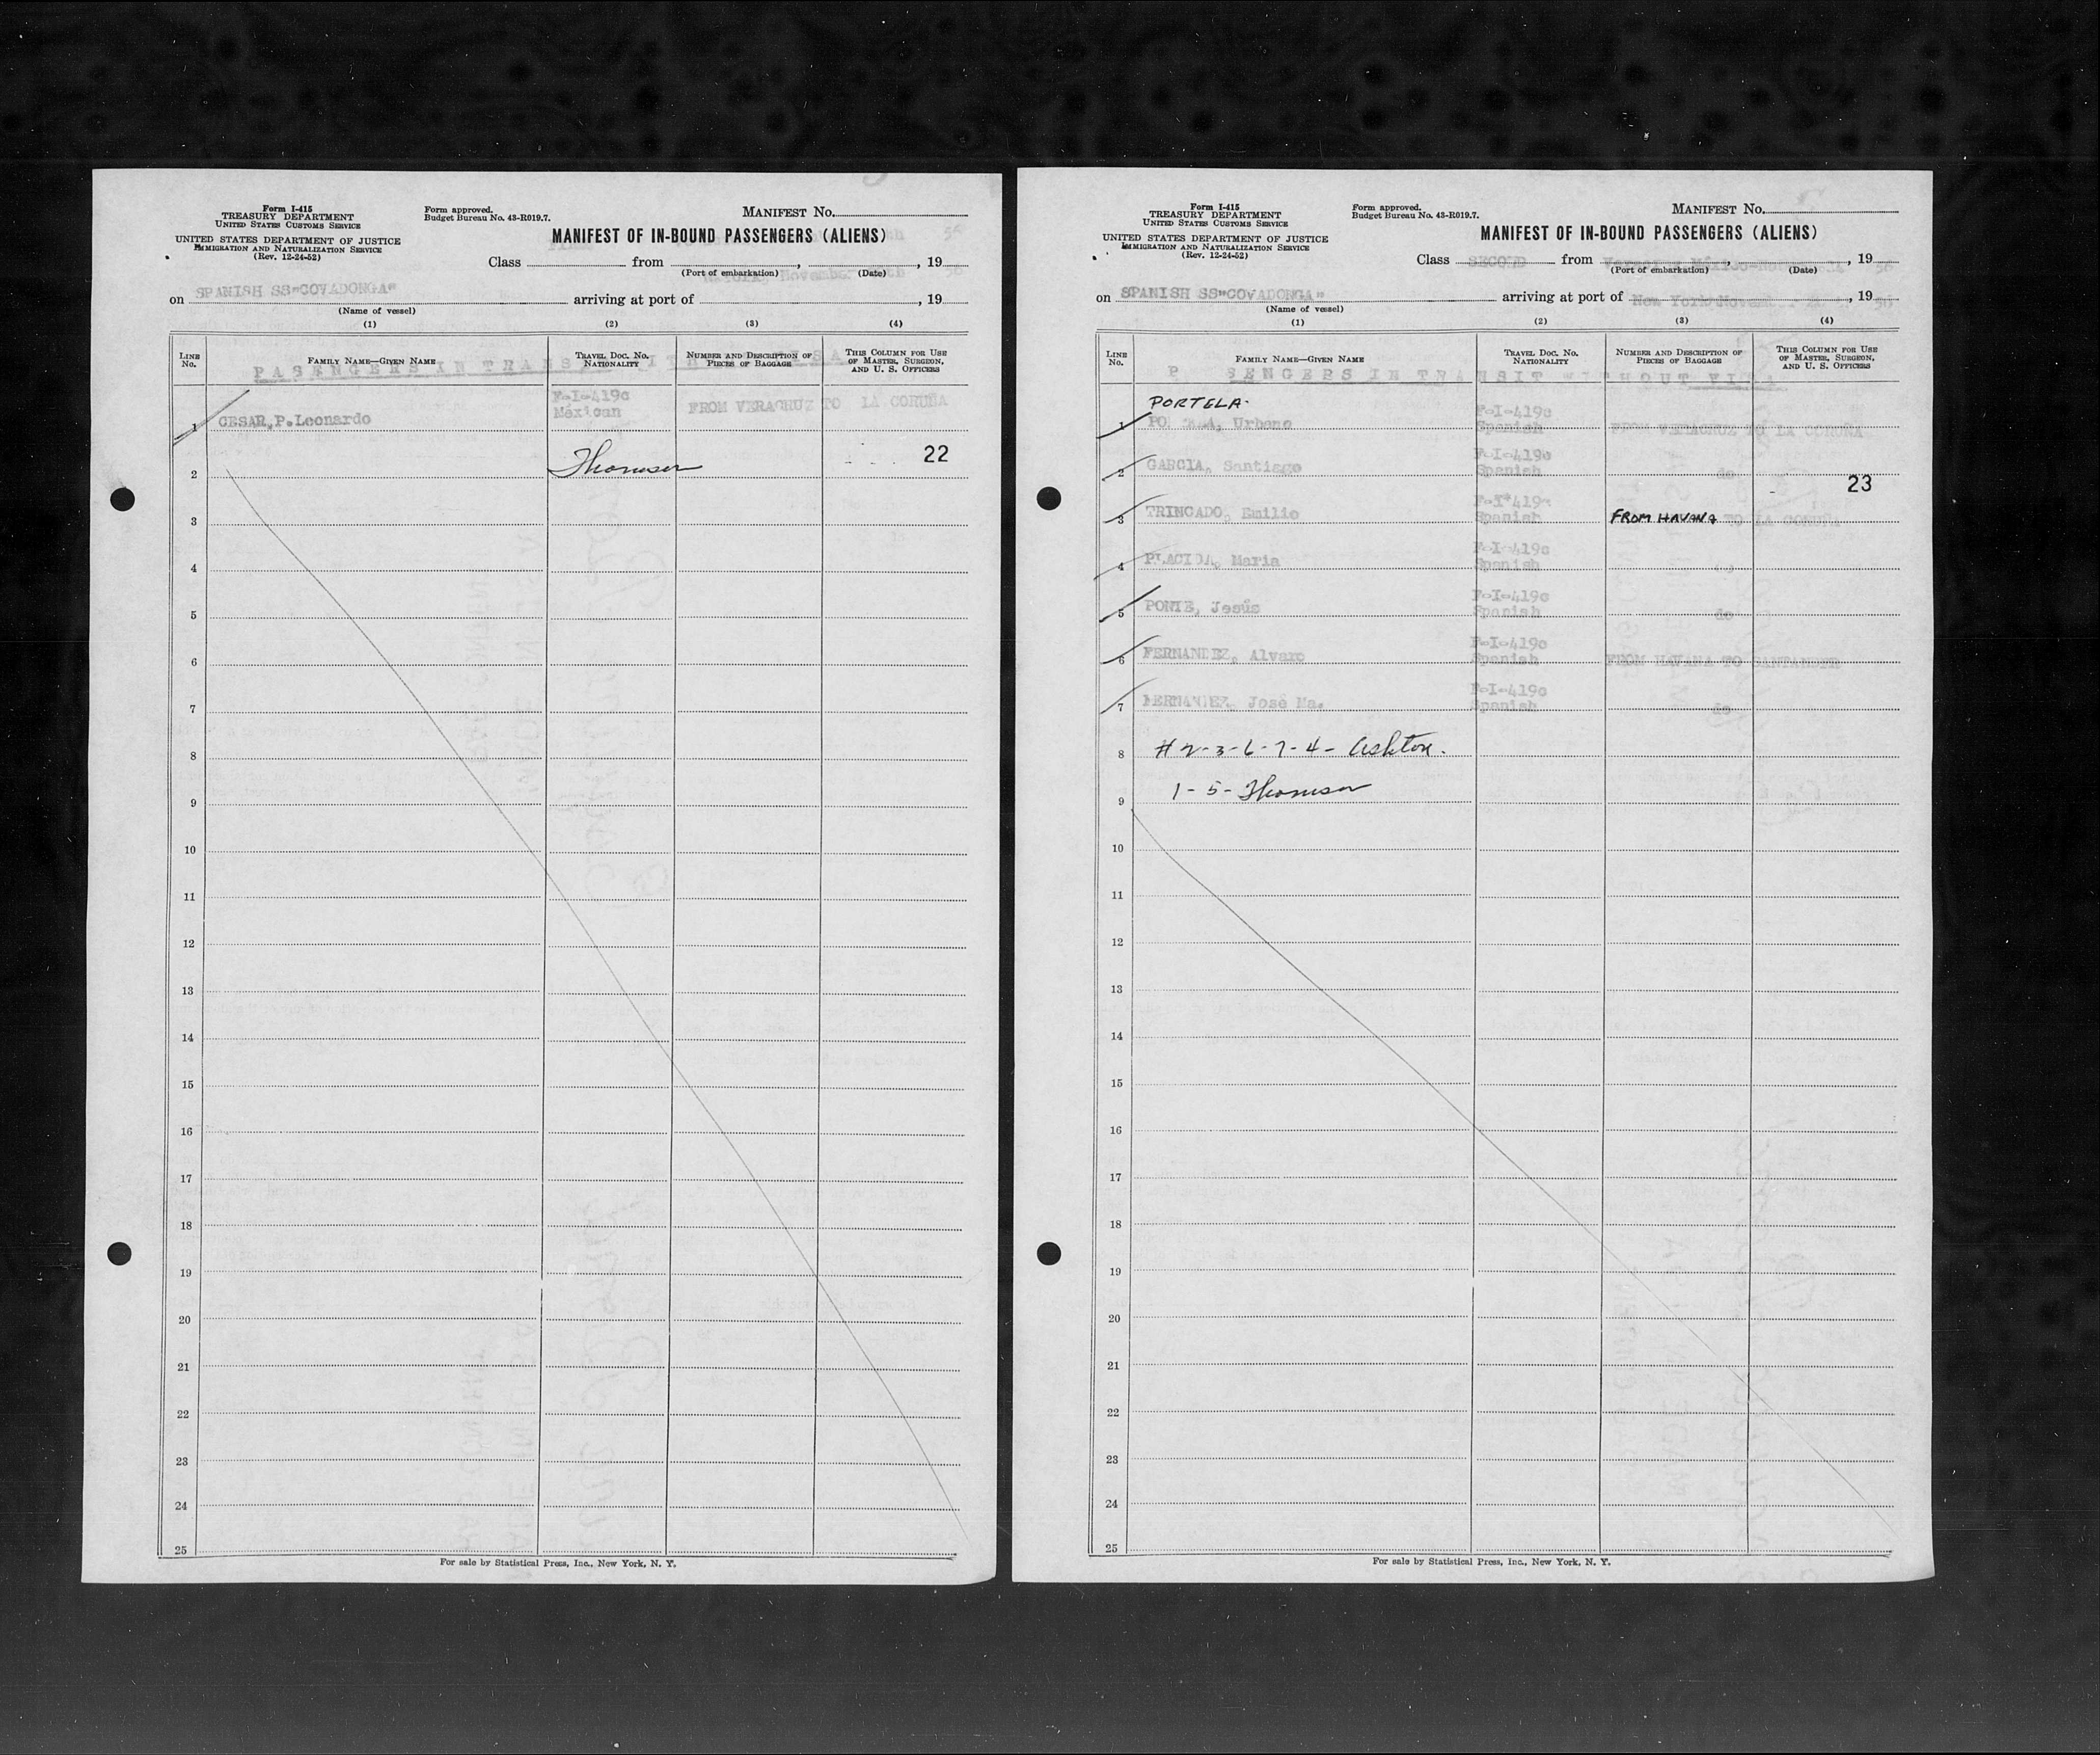 Form I-415
TREASURY DEPARTMENT
UNITED STATES CUSTOMS SERVICE
UNITED STATES DEPARTMENT OF JUSTICE
IMMIGRATION AND NATURALIZATION SERVICE
(Rev. 12-24-52)
Form approved.
Budget Bureau No. 43-R019.7.
MANIFEST NO.
MANIFEST OF IN-BOUND PASSENGERS (ALIENS)
Class from , , 19
(Port of embarkation) (Date)
on SPANISH SS"COVADONGA" arriving at port of , 19
(Name of vessel)
(1) (2) (3) (4)
LINE NO. FAMILY NAME—GIVEN NAME TRAVEL DOC. NO. NATIONALITY NUMBER AND DESCRIPTION OF PIECES OF BAGGAGE THIS COLUMN FOR USE OF MASTER, SURGEON, AND U. S. OFFICERS
PASENGERS IN TRANSIT
1 CESAR, P. Leonardo F-I-419c Méxican FROM VERACRUZ TO LA CORUÑA
2 Thomson 22
3
4
5
6
7
8
9
10
11
12
13
14
15
16
17
18
19
20
21
22
23
24
25
For sale by Statistical Press, Inc., New York, N. Y.
Form I-415
TREASURY DEPARTMENT
UNITED STATES CUSTOMS SERVICE
UNITED STATES DEPARTMENT OF JUSTICE
IMMIGRATION AND NATURALIZATION SERVICE
(Rev. 12-24-52)
Form approved.
Budget Bureau No. 43-R019.7.
MANIFEST NO.
MANIFEST OF IN-BOUND PASSENGERS (ALIENS)
Class SECOND from Veracruz México , 19 56
(Port of embarkation) (Date)
on SPANISH SS"COVADONGA" arriving at port of New York , 19 56
(Name of vessel)
(1) (2) (3) (4)
LINE NO. FAMILY NAME—GIVEN NAME TRAVEL DOC. NO. NATIONALITY NUMBER AND DESCRIPTION OF PIECES OF BAGGAGE THIS COLUMN FOR USE OF MASTER, SURGEON, AND U. S. OFFICERS
P SENGERS IN TRANSIT WITHOUT VISA
PORTELA.
1 Urbano F-I-419c Spanish FROM VERACRUZ TO LA CORUÑA
2 GARCIA, Santiago F-I-419c Spanish do
23
3 TRINCADO, Emilio F-I-419c Spanish FROM HAVANA TO LA CORUÑA
4 PLACIDA, Maria F-I-419c Spanish
5 PONTE, Jesús F-I-419c Spanish do
6 FERNANDEZ, Alvaro F-I-419c Spanish FROM HAVANA TO SANTANDER
7 FERNANDEZ, José Ma. F-I-419c Spanish do
8 # 2-3-6-7-4- Ashton.
9 1-5- Thomson
10
11
12
13
14
15
16
17
18
19
20
21
22
23
24
25
For sale by Statistical Press, Inc., New York, N. Y.